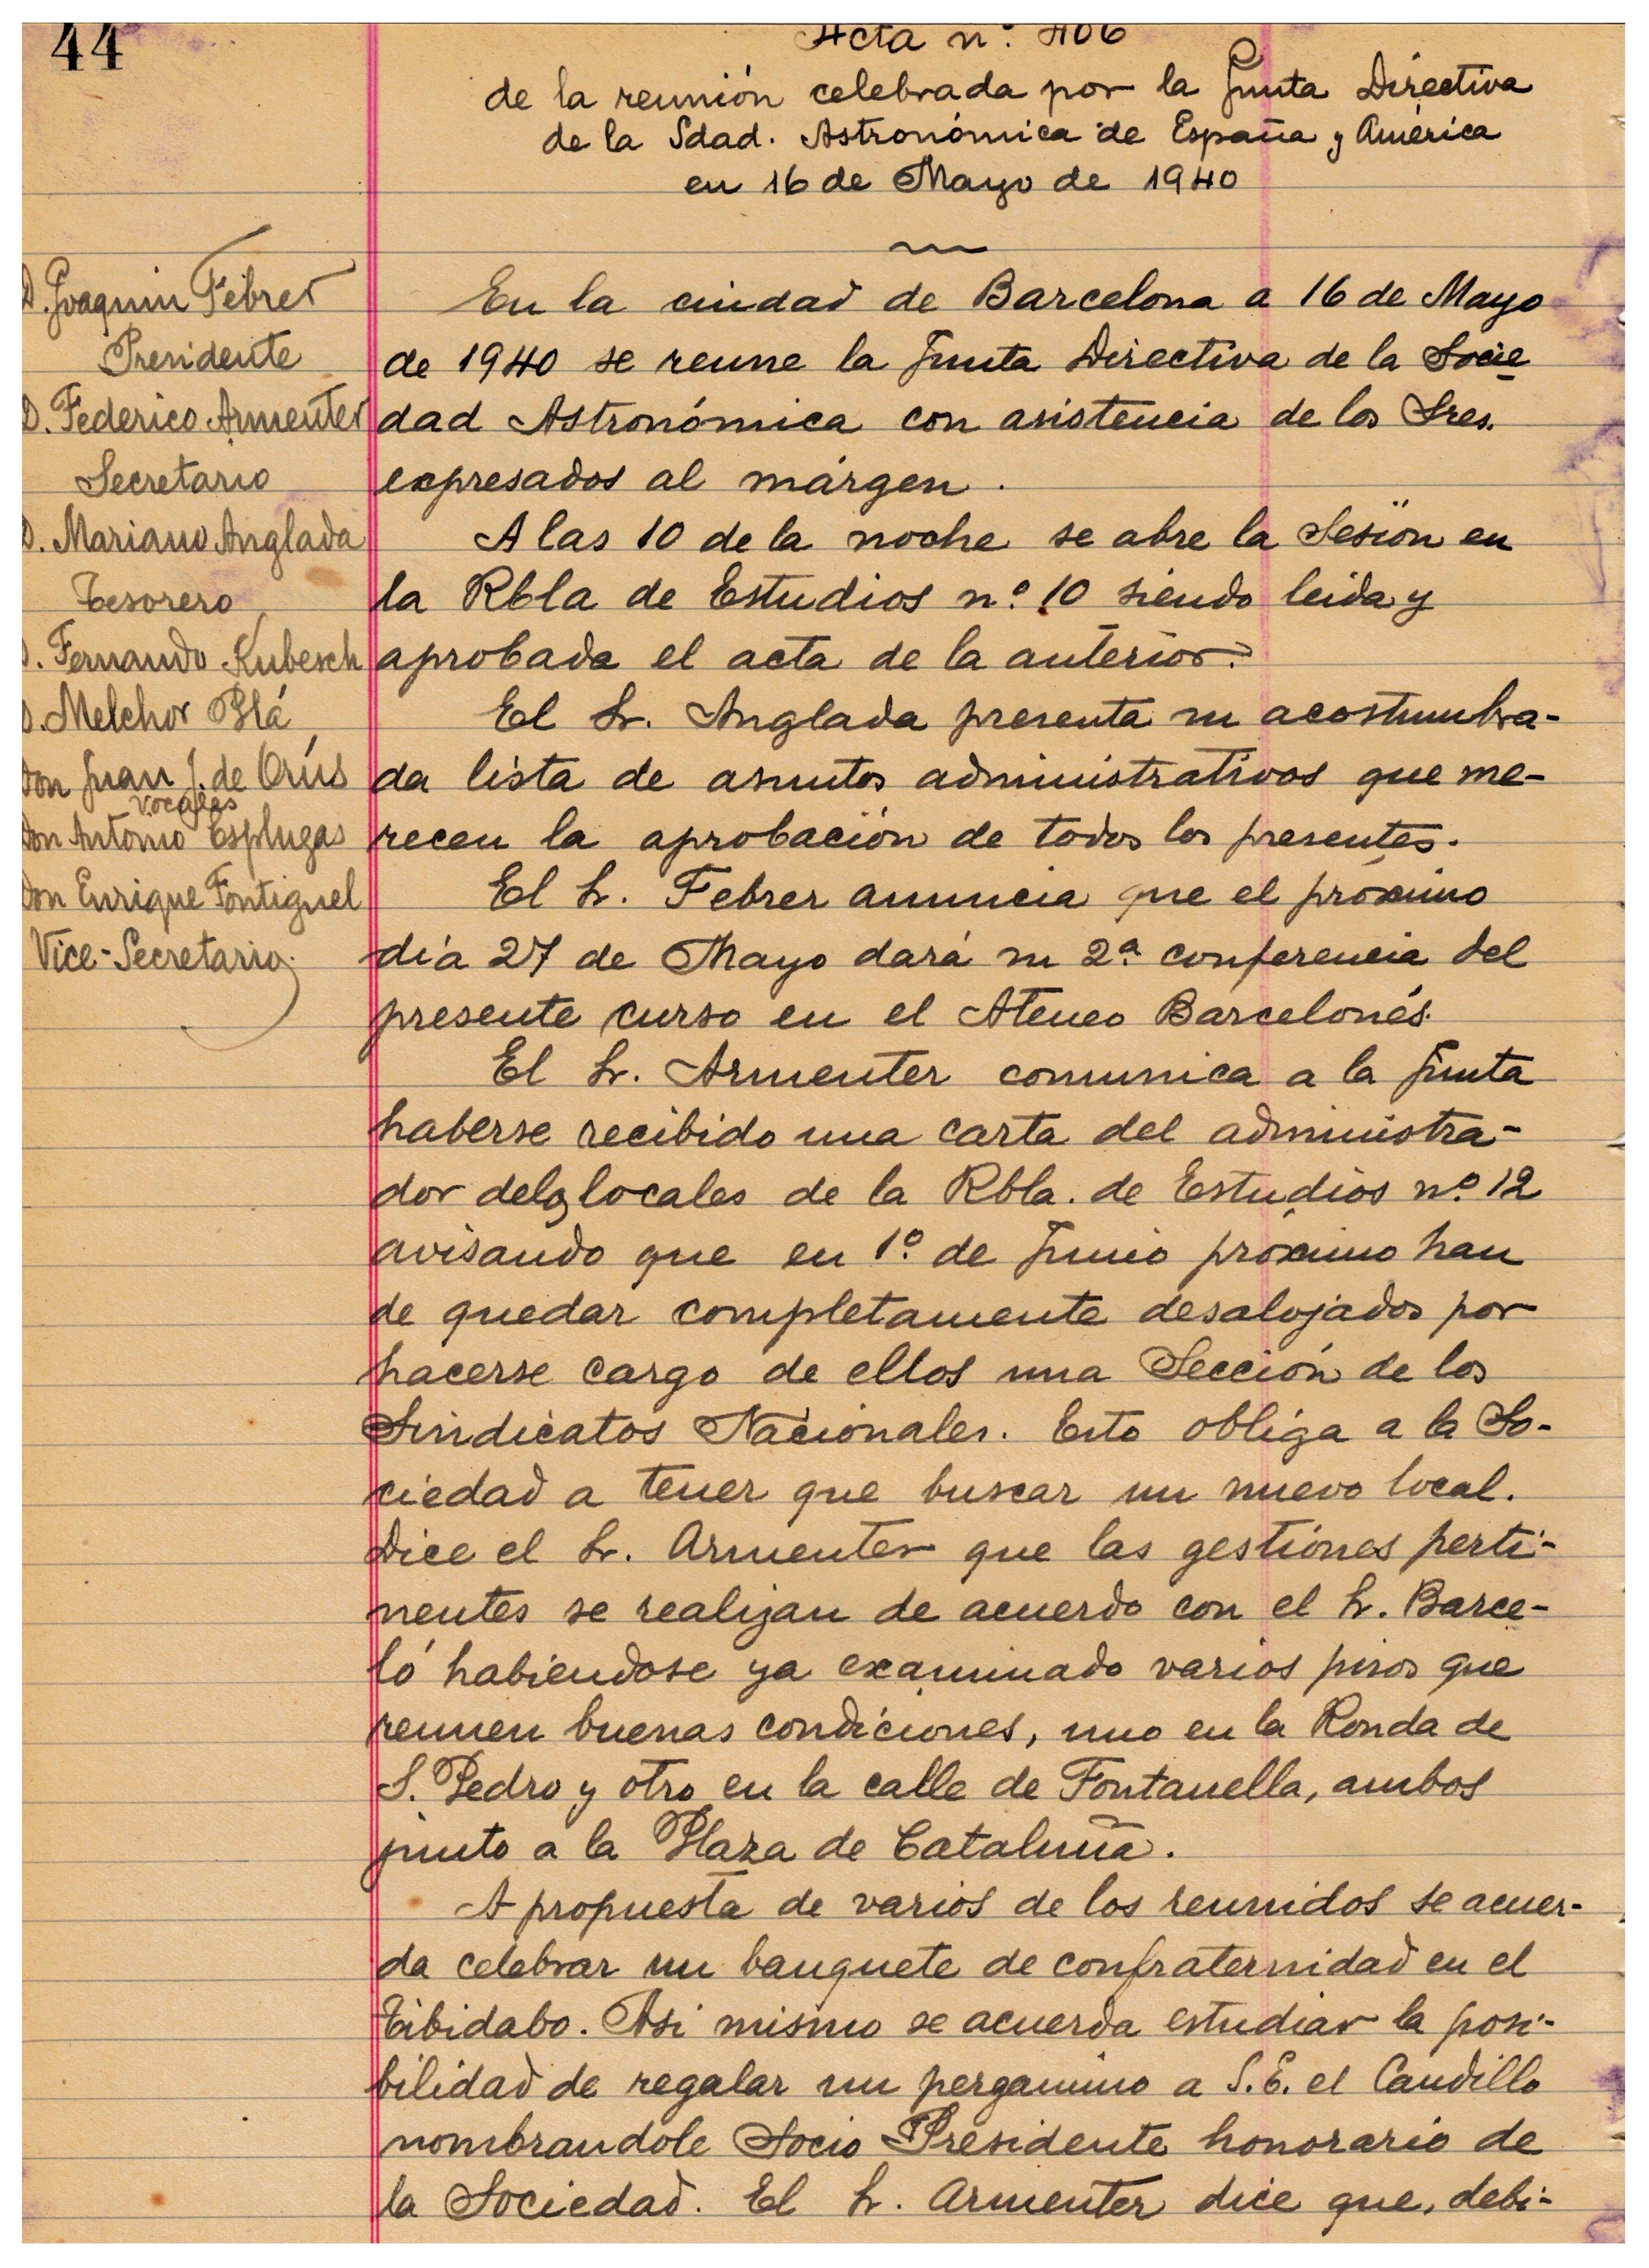 44
Acta n.º 406
de la reunión celebrada por la Junta Directiva
de la Sdad. Astronómica de España y América
en 16 de Mayo de 1940
D. Joaquin Febrer
Presidente
D. Federico Armenter
Secretario
D. Mariano Anglada
Tesorero
D. Fernando Kubesch
D. Melchor Plá
Don Juan J. de Orús
Vocales
Don Antonio Esplugas
Don Enrique Fontiguel
Vice-Secretario.
En la ciudad de Barcelona a 16 de Mayo
de 1940 se reune la Junta Directiva de la Socie
dad Astronómica con asistencia de los Sres.
expresados al márgen.
A las 10 de la noche se abre la Sesión en
la Rbla de Estudios n.º 10 siendo leida y
aprobada el acta de la anterior.
El Sr. Anglada presenta su acostumbra-
da lista de asuntos administrativos que me-
recen la aprobación de todos los presentes.
El Sr. Febrer anuncia que el próximo
día 27 de Mayo dará su 2.ª conferencia del
presente curso en el Ateneo Barcelonés.
El Sr. Armenter comunica a la Junta
haberse recibido una carta del administra-
dor delos locales de la Rbla. de Estudios n.º 12
avisando que en 1.º de Junio próximo han
de quedar completamente desalojados por
hacerse cargo de ellos una Sección de los
Sindicatos Nacionales. Esto obliga a la So-
ciedad a tener que buscar un nuevo local.
Dice el Sr. Armenter que las gestiones perti-
nentes se realizan de acuerdo con el Sr. Barce-
ló habiendose ya examinado varios pisos que
reunen buenas condiciones, uno en la Ronda de
S. Pedro y otro en la calle de Fontanella, ambos
junto a la Plaza de Cataluña.
A propuesta de varios de los reunidos se acuer-
da celebrar un banquete de confraternidad en el
Tibidabo. Asi mismo se acuerda estudiar la posi-
bilidad de regalar un pergamino a S.E. el Caudillo
nombrandole Socio Presidente honorario de
la Sociedad. El Sr. Armenter dice que, debi-